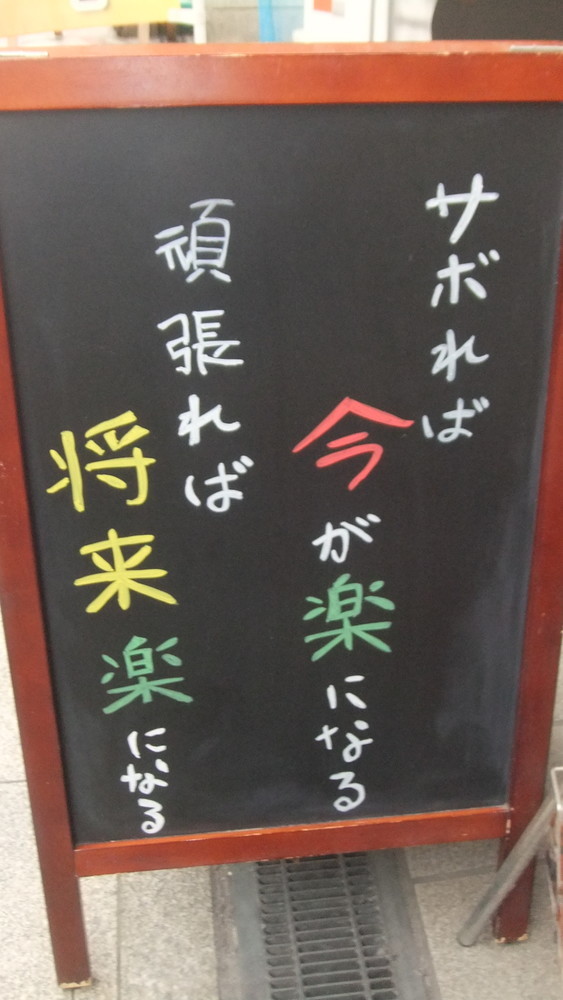 サボれば
今が楽になる
頑張れば
将来楽になる